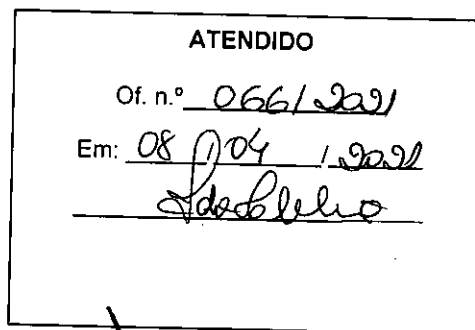 ATENDIDO
Of. n.º 066/2021
Em: 08/04/2021